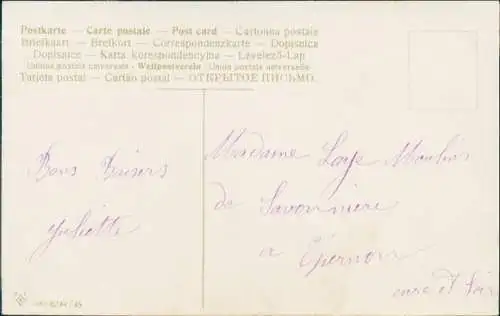 Postkarte — Carte postale — Post card — Cartolina postale
Briefkaart — Brefkort — Correspondenzkarte — Dopisnica
Dopisnice — Karta korespondencyjna — Levelező-Lap
Unione postale universale - Weltpostverein - Union postale universelle
Tarjeta postal — Cartão postal — ОТКРЫТОЕ ПИСЬМО.
Bons Baisers
Juliette
Madame Moulin
de Savonnière
a Epernon
eure et Loir